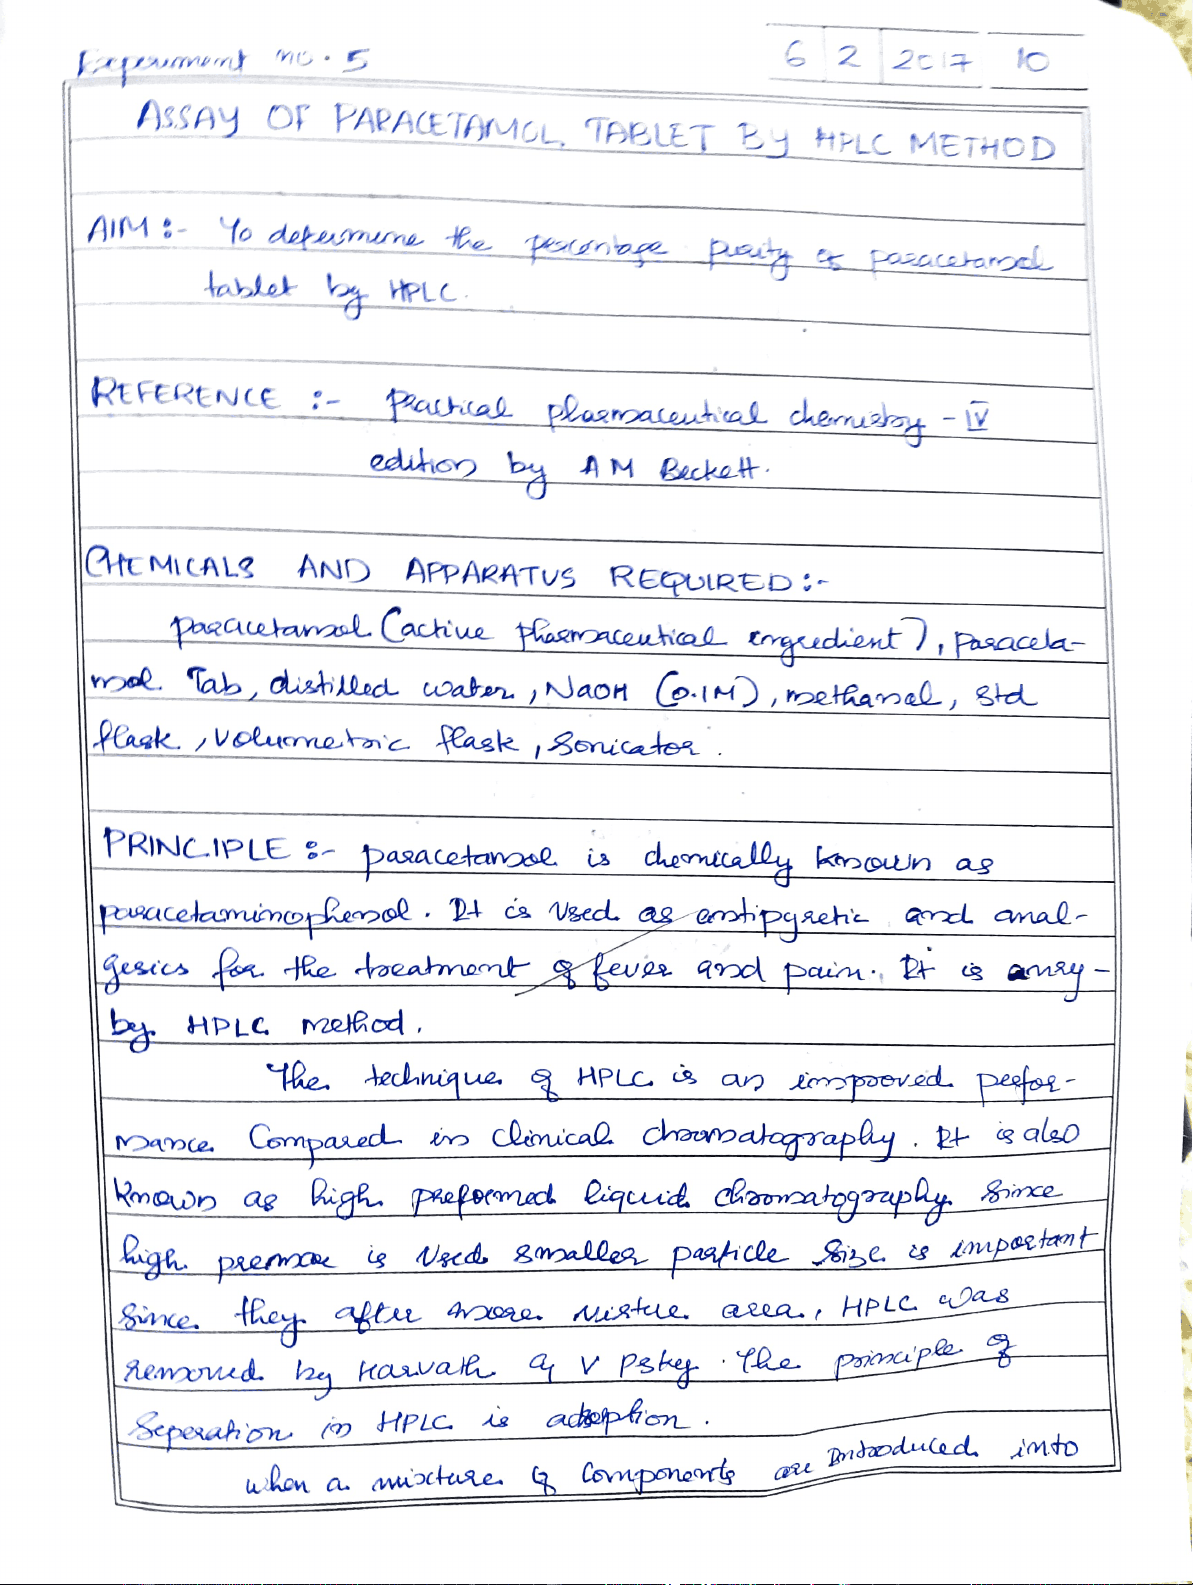 Experiment no. 5
6 2 2017 10
ASSAY OF PARACETAMOL TABLET BY HPLC METHOD
AIM :- To determine the percentage purity of paracetamol
tablet by HPLC.
REFERENCE :- Practical pharmaceutical chemistry - IV
edition by A M Beckett.
CHEMICALS AND APPARATUS REQUIRED :-
paracetamol (active pharmaceutical ingredient), paraceta-
mol Tab, distilled water, NaOH (0.1M), methanol, std
flask, volumetric flask, sonicator.
PRINCIPLE :- paracetamol is chemically known as
paracetaminophenol. It is used as antipyretic and anal-
gesics for the treatment of fever and pain. It is
by HPLC method.
The technique of HPLC is an improved perfor-
mance compared in clinical chromatography. It is also
known as high preformed liquid chromatography since
high is used smaller particle size is important
since they after more area, HPLC was
by Harvath V The principle of
Seperation in HPLC is
when a mixture of components are introduced into